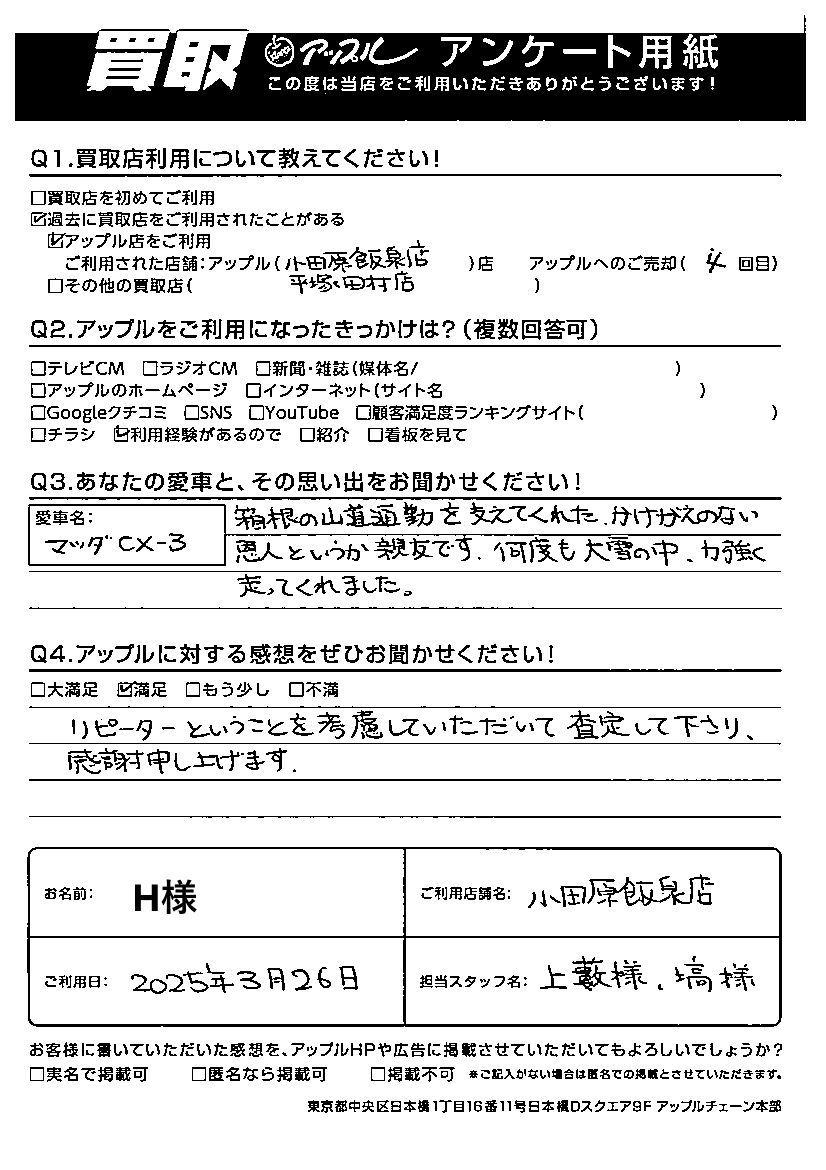 買取 アップル アンケート用紙
この度は当店をご利用いただきありがとうございます！
Q1.買取店利用について教えてください！
□買取店を初めてご利用
☑過去に買取店をご利用されたことがある
☑アップル店をご利用
ご利用された店舗：アップル（小田原飯泉店 平塚・田村店）店 アップルへのご売却（4 回目）
□その他の買取店（ ）
Q2.アップルをご利用になったきっかけは？（複数回答可）
□テレビCM □ラジオCM □新聞・雑誌（媒体名/ ）
□アップルのホームページ □インターネット（サイト名 ）
□Googleクチコミ □SNS □YouTube □顧客満足度ランキングサイト（ ）
□チラシ ☑利用経験があるので □紹介 □看板を見て
Q3.あなたの愛車と、その思い出をお聞かせください！
愛車名：
マツダCX-3
箱根の山道通勤を支えてくれた、かけがえのない
恩人というか親友です。何度も大雪の中、力強く
走ってくれました。
Q4.アップルに対する感想をぜひお聞かせください！
□大満足 ☑満足 □もう少し □不満
リピーターということを考慮していただいて査定して下さり、
感謝申し上げます。
お名前： H様
ご利用店舗名： 小田原飯泉店
ご利用日： 2025年3月26日
担当スタッフ名： 上藪様、塙様
お客様に書いていただいた感想を、アップルHPや広告に掲載させていただいてもよろしいでしょうか？
□実名で掲載可 □匿名なら掲載可 □掲載不可 ※ご記入がない場合は匿名での掲載とさせていただきます。
東京都中央区日本橋1丁目16番11号日本橋Dスクエア9F アップルチェーン本部